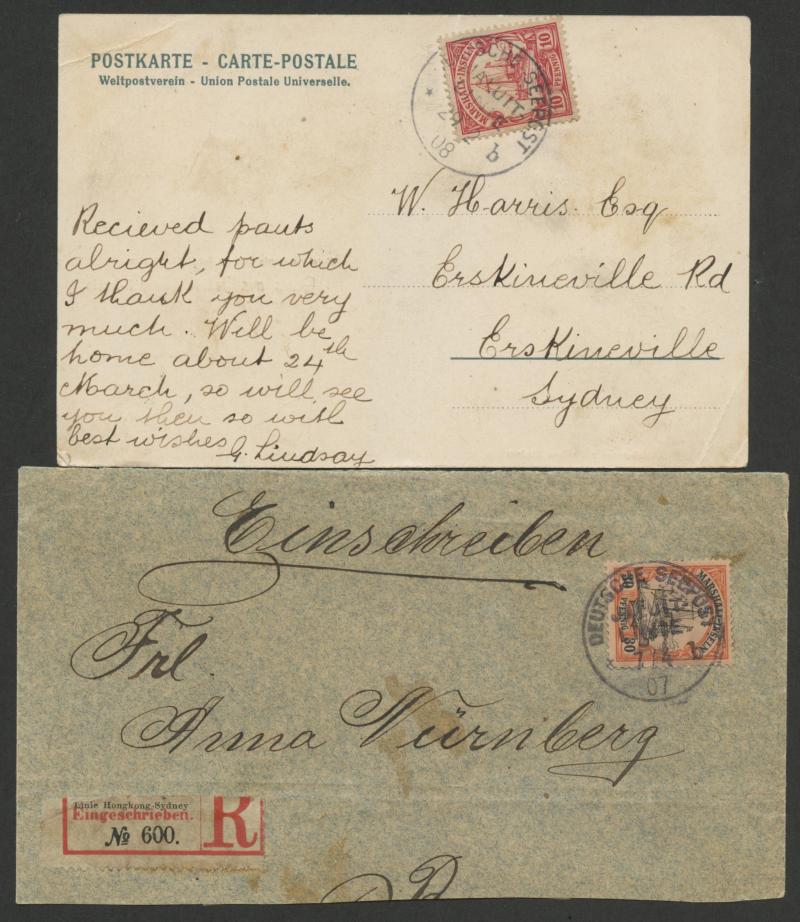 POSTKARTE - CARTE-POSTALE
Weltpostverein - Union Postale Universelle.
10 PFENNIG 10
MARSHALL-INSELN
SEEPOST
08 b
W. Harris Esq
Erskineville Rd
Erskineville
Sydney
Recieved pants
alright, for which
I thank you very
much. Will be
home about 24th
March, so will see
you then so with
best wishes
G. Lindsay
Einschreiben
MARSHALL-INSELN
30 PFENNIG 30
DEUTSCHE SEEPOST
b
07
Frl.
Anna Nürnberg
Linie Hongkong-Sydney
Eingeschrieben.
№ 600.
R